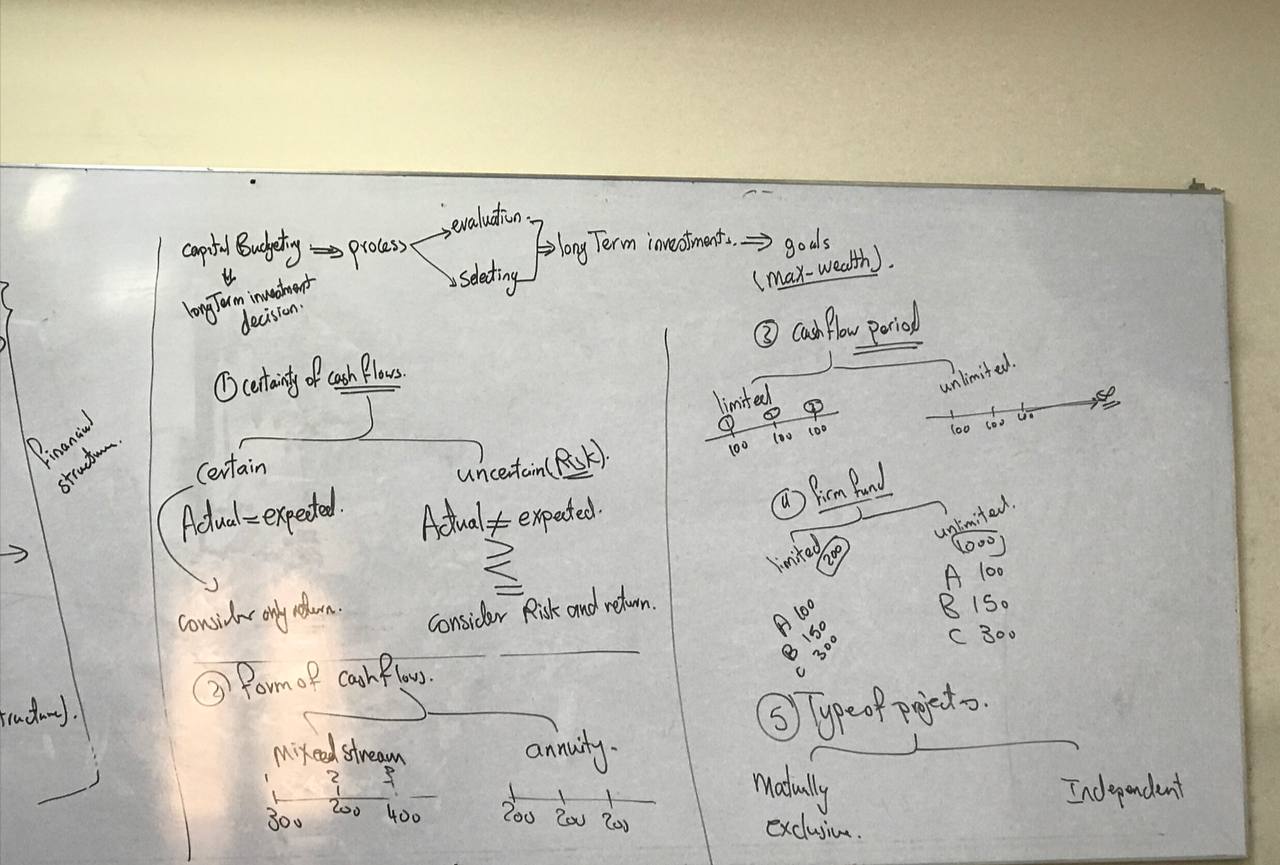 capital Budgeting ⇒ process → evaluation → selecting ⇒ long Term investments. ⇒ goals
(max-wealth).
⇓
long Term investment
decision.
Financial
structure.
→
tructure).
① certainty of cash flows.
Certain
Actual = expected.
consider only return.
uncertain (Risk).
Actual ≠ expected.
>
<
=
consider Risk and return.
② form of cash flows.
Mixeed stream
1 2 3
300 200 400
annuity.
200 200 200
③ cash flow period
limited
① ② ③
100 100 100
unlimited.
100 100 100 ∞
④ firm fund
limited 200
A 100
B 150
C 300
unlimited.
(000)
A 100
B 150
C 300
⑤ Type of projects.
Matually
exclusive.
Independent